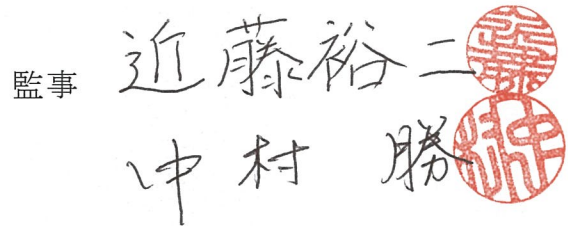 監事 近藤裕二
中村 勝